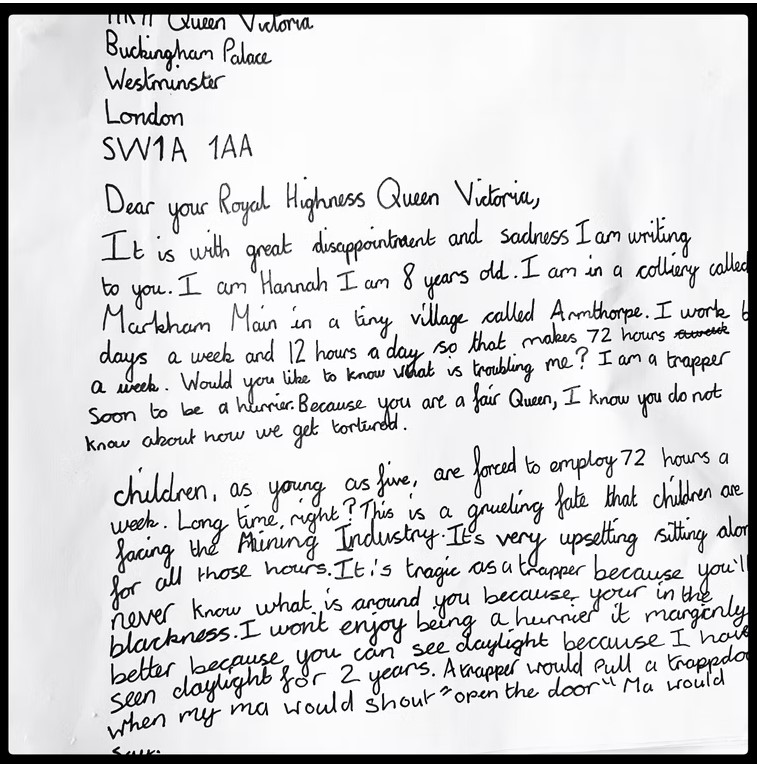 HRH Queen Victoria
Buckingham Palace
Westminster
London
SW1A 1AA
Dear your Royal Highness Queen Victoria,
It is with great disappointment and sadness I am writing
to you. I am Hannah I am 8 years old. I am in a colliery called
Markham Main in a tiny village called Armthorpe. I work 6
days a week and 12 hours a day so that makes 72 hours
a week. Would you like to know what is troubling me? I am a trapper
Soon to be a hurrier. Because you are a fair Queen, I know you do not
know about how we get tortured.
children, as young as five, are forced to employ 72 hours a
week. Long time, right? This is a grueling fate that children are
facing the Mining Industry. It's very upsetting sitting alon
for all those hours. It is tragic as a trapper because you'll
never know what is around you because your in the
blackness. I wont enjoy being a hurrier it marginly
better because you can see daylight because I have
seen daylight for 2 years. A trapper would pull a trappdoo
when my ma would shout "open the door" Ma would